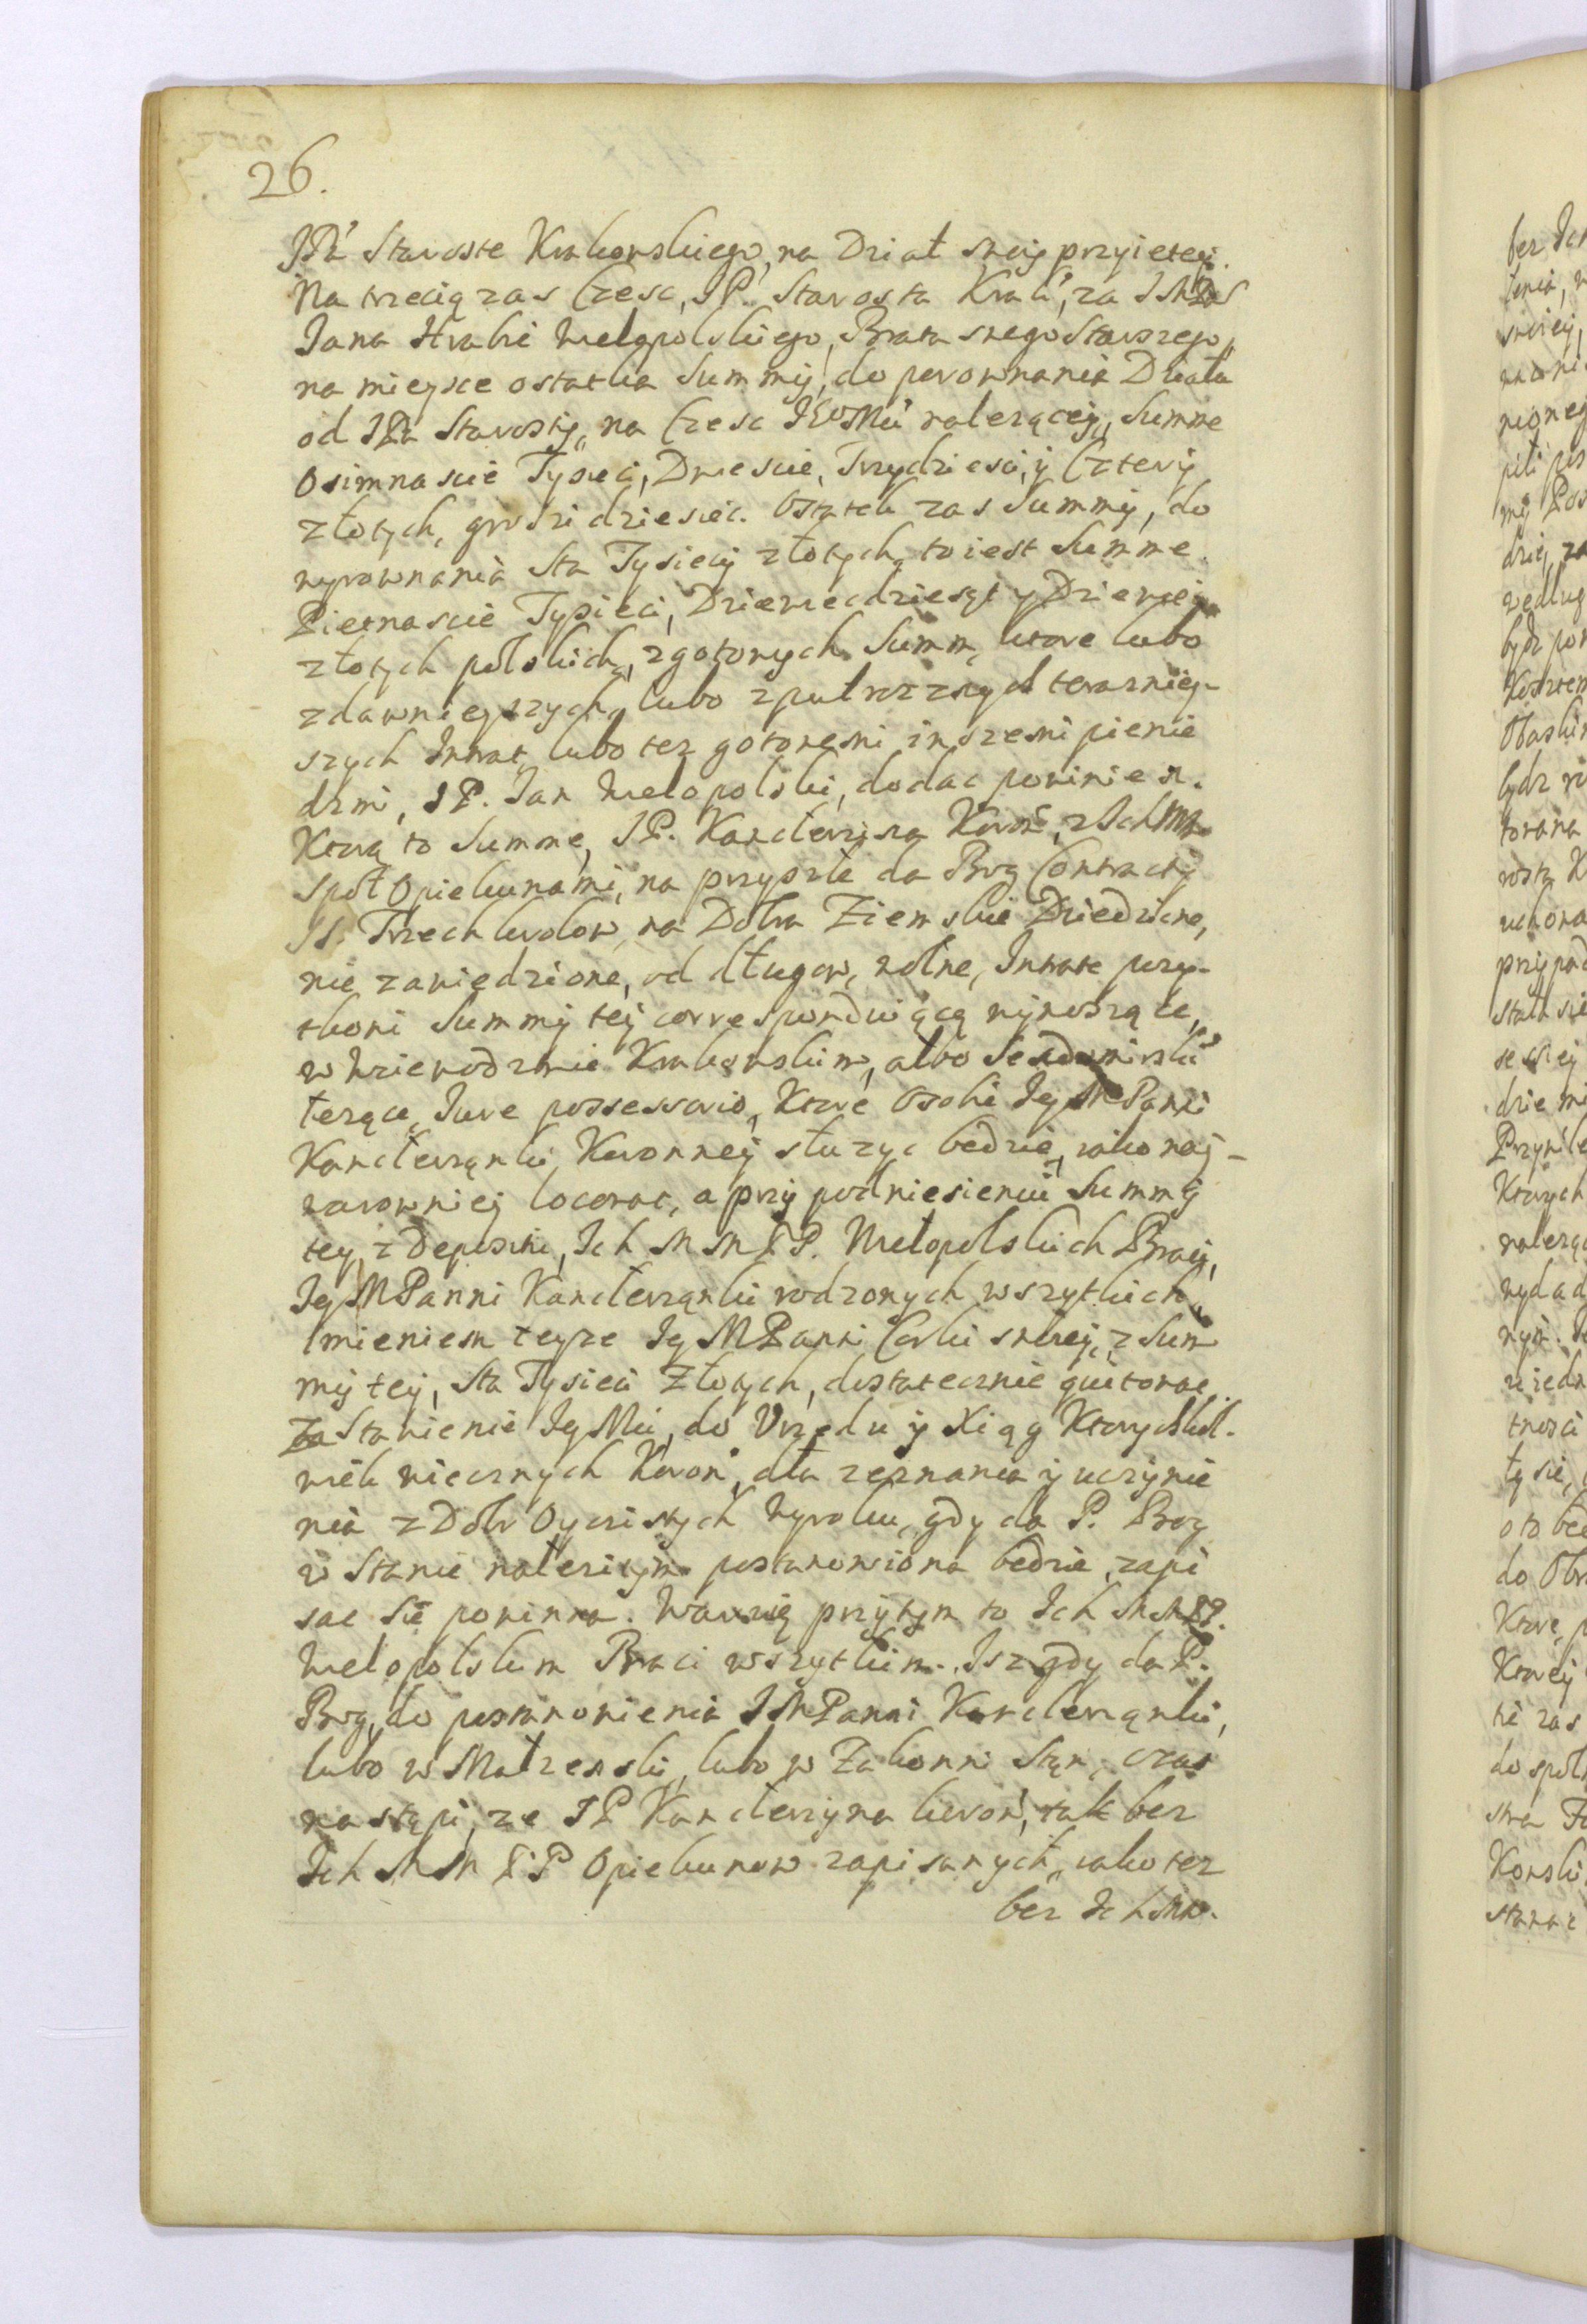 26.
JPa Staroste Krakowskiego, na Dział swoy przyietey.
Na trzecią zas Czesc, JP. Starosta Krak, za JMP
Jana Hrabie Wielopolskiego, Brata swego Starszego,
na mieysce ostatka Summy, do porownania Działu
od JPa Starosty, na Czesc JEoMci nalezącey, Summe
Osimnascie Tysiecy, Dwiescie, Trzydziesci, y Cztery
złotych, groszi dziesiec. Ostatek zas Summy, do
wyrownania Sta Tysiecy złotych, to iest Summe
Pietnascie Tysieci, Dziewiecdziesąt y Dziewiec
złotych polskich, z gotowych Summ, ktore lubo
z dawnieyszych, lubo z pułrocznych terazniey-
szych Intrat, lubo tez gotowemi inszemi pienie
dzmi, JP. Jan Wielopolski, dodac powinien.
Ktorą to Summe, JP. Kanclerzyna Koron, z IchMM
Społ Opiekunami, na przyszłe da Bog Contracty
SS. Trzech krolow, na Dobra Ziemskie Dziedziczne,
nie zawiedzione, od długow, wolne, Intrate przy-
tkoni Summy tey correspondwiącą wynoszące,
w Wziewodztwie Krakowskim, albo Sendomirski
lezące, Jure possessorio, Ktore Osobie JeyMPanni
Kanclerząnki Koronney słuzyc bedzie, iako nay-
zarowniey locowac, a przy podniesieniu Summy
tey z Depositu, Ich MM PP. Wielopolskich Braci,
JeyMPanni Kanclerząnki rodzonych wszytkich,
Imieniem teyze JeyMPanni Corki swoiey, z Sum
my tey, Sta Tysieci Złotych, dostatecznie quitowac,
Za Stawienie JeyMci, do Urzedu y Xiąg Ktorychkol-
wiek wiecznych Koron, dla zeznania y uczynie
nia z Dobr Oyczistych Wyroku, gdy da P. Bog
w Stanie nalezitym postanowiona bedzie, zapi
sac sie powinna. Waruią przytym to Ich MMPP.
Wielopolskim Braci wszytkim. Isz gdy da P.
Bog, do postanowienia JMPanni Kanclerząnki,
lubo w Małzenski, lubo w Zakonni Stan, czas
nastąpi, ze JP Kanclerzyna koron, tak bez
Ich MM PP Opiekunow zapisanych, iako tez
bez Ich MM.